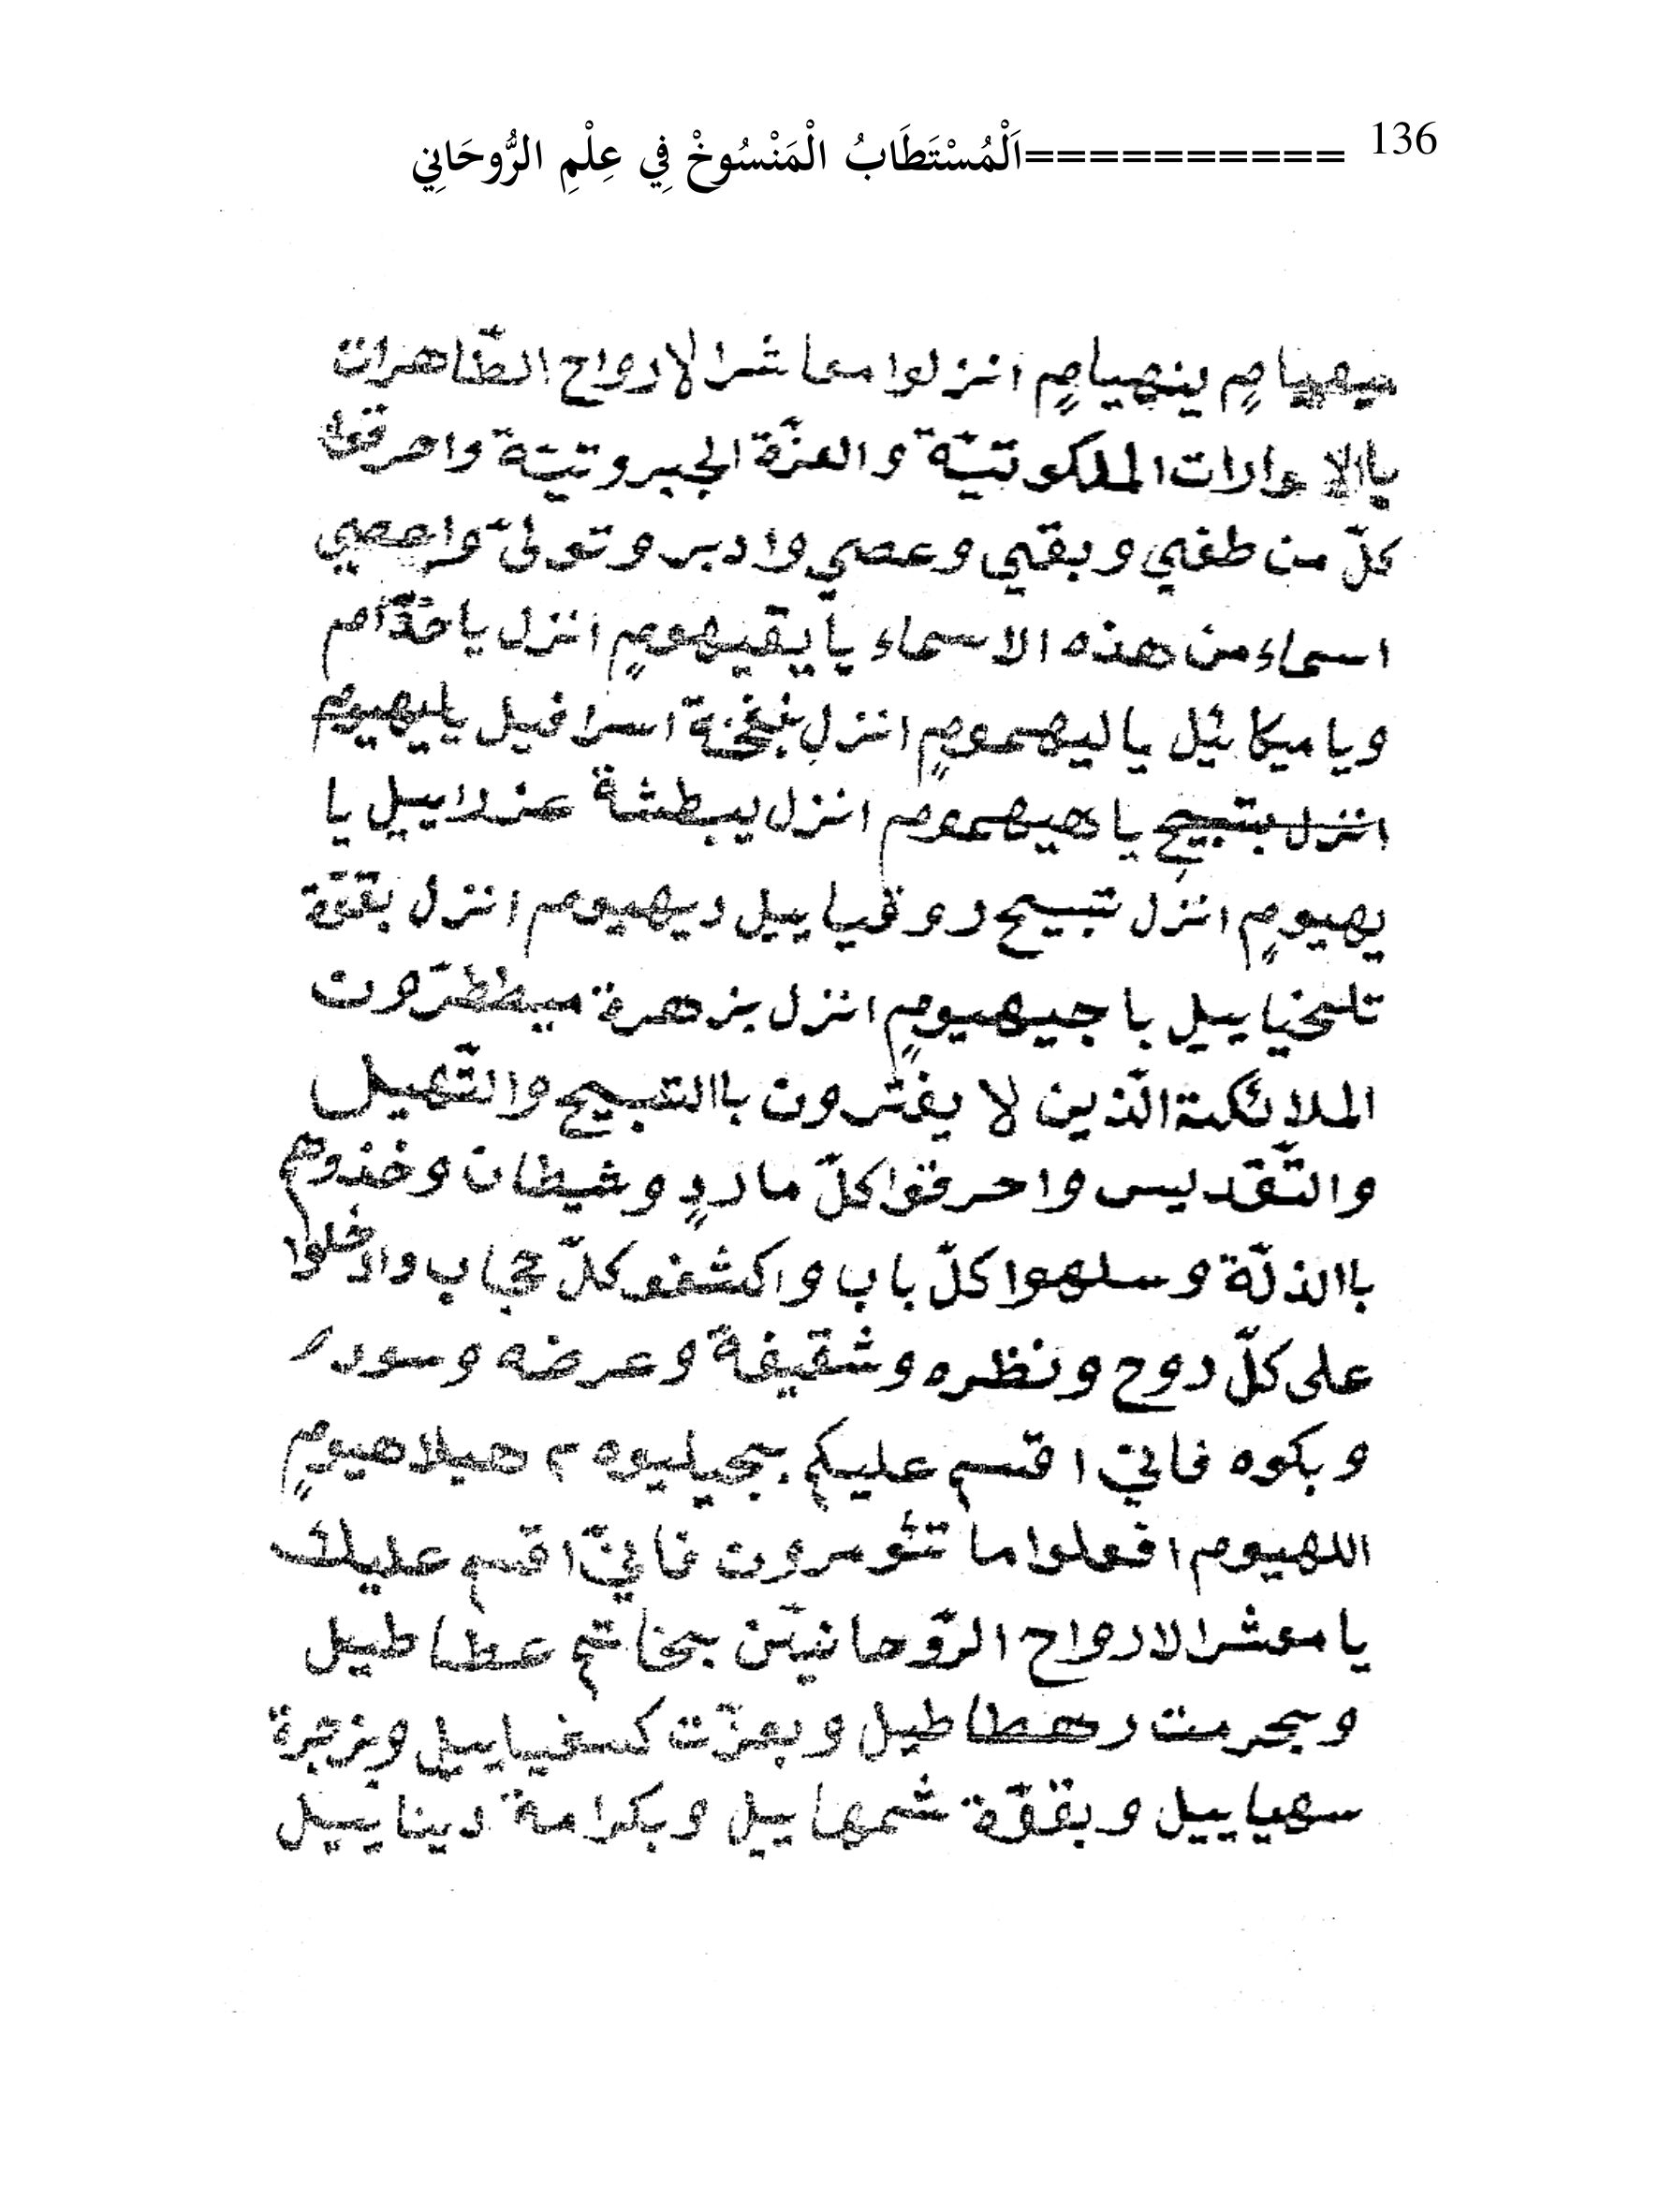 136 ==========اَلْمُسْتَطَابُ الْمَنْسُوخْ فِي عِلْمِ الرُّوحَانِي
ينهيامٍ انزلوا معاشر الارواح الطّاهرات
الملكوتيّة والعزّة الجبروتيّة واحرقوا
كلّ من طغي وبقي وعصي وادبر وتولىّ
اسماء من هذه الاسماء يا يقيهومٍ انزل يا خدّام
ويا ميكائيل يا ليهمومٍ انزل بنفخة اسرافيل يا ليهيوم
انزل بتبيح يا هيهموم انزل يبطشة عزلاييل يا
يهيومٍ انزل تبسيح روقياييل ديهيوم انزل بققّة
تلخياييل يا جيهيومٍ انزل بزهرة ميططرّون
الملائكة الّذين لا يفترون باالتبيح والتّهيل
والتّقديس واحرقوا كلّ ماردٍ وشيطان وخذوهم
باالذلّة وسلهوا كلّ باب واكشفو كلّ حجاب وادخلوا
على كلّ روح ونظره وشقيفة وعرضه وسور
وبكوه فانيّ اقسم عليكم بجيليوه ٢ هيلاهيومٍ
اللهيوم افعلوا ما تئومرون فانيّ اقسم عليك
يا معشر الارواح الرّوحانيّن بخاتم عطاطيل
وبجرمت رهطاطيل وبعزّت كسفياييل وبزجرة
سهياييل وبققّة شمهاييل وبكرامة ديناييل